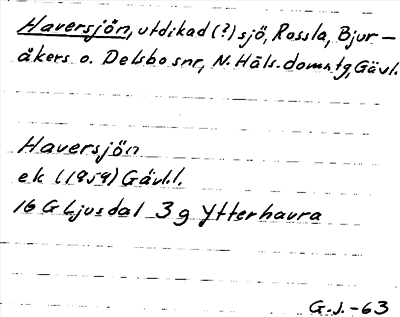 Haversjön, utdikad (?) sjö, Rossla, Bjur-
åkers o. Delsbo snr, N. Häls. domstg, Gävl.
Haversjön
ek (1959) Gävl.l.
16 G Ljusdal 3 g Ytterhavra
G.J. -63